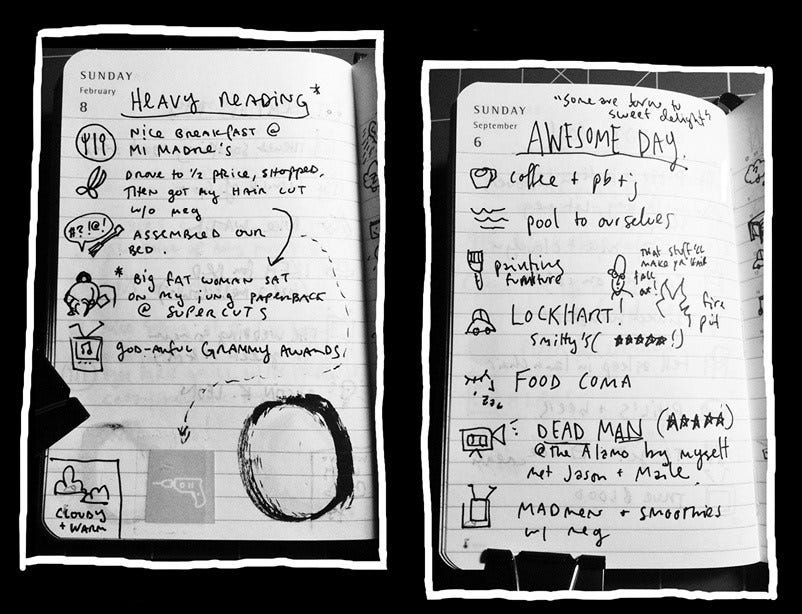 SUNDAY
February
8
HEAVY READING*
NICE BREAKFAST @
MI MADRE'S
DROVE TO 1/2 PRICE, SHOPPED,
THEN GOT MY HAIR CUT
W/O MEG
#?!@!
ASSEMBLED OUR
BED.
* BIG FAT WOMAN SAT
ON MY JUNG PAPERBACK
@ SUPERCUTS
GOD-AWFUL GRAMMY AWARDS.
CLOUDY
+ WARM
SUNDAY
September
6
"some are born to
sweet delight"
AWESOME DAY.
coffee + pb + j
pool to ourselves
painting
furniture
that stuff'll
make yr hair
fall
out!
fire
pit
LOCKHART.
Smitty's (★★★★★!)
FOOD COMA
zzz
DEAD MAN (★★★★★)
@ the Alamo by myself
met Jason + Maile.
MADMEN + SMOOTHIES
w/ meg